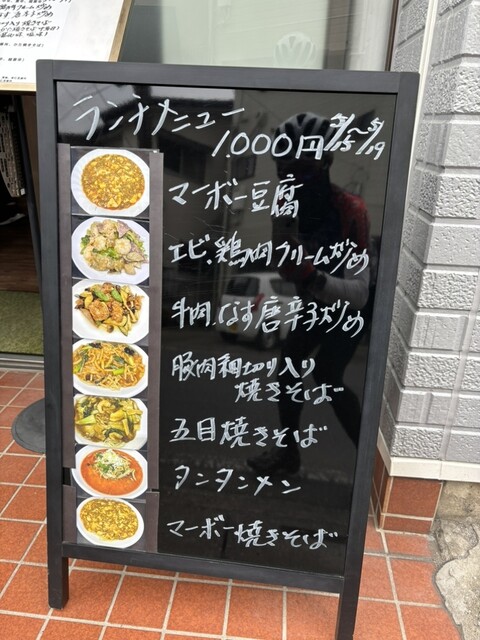 ランチメニュー
1.000円 5/15〜5/19
マーボー豆腐
エビ.鶏肉クリーム炒め
牛肉.なす唐辛子炒め
豚肉細切り入り
焼きそば
五目焼きそば
タンタンメン
マーボー焼きそば